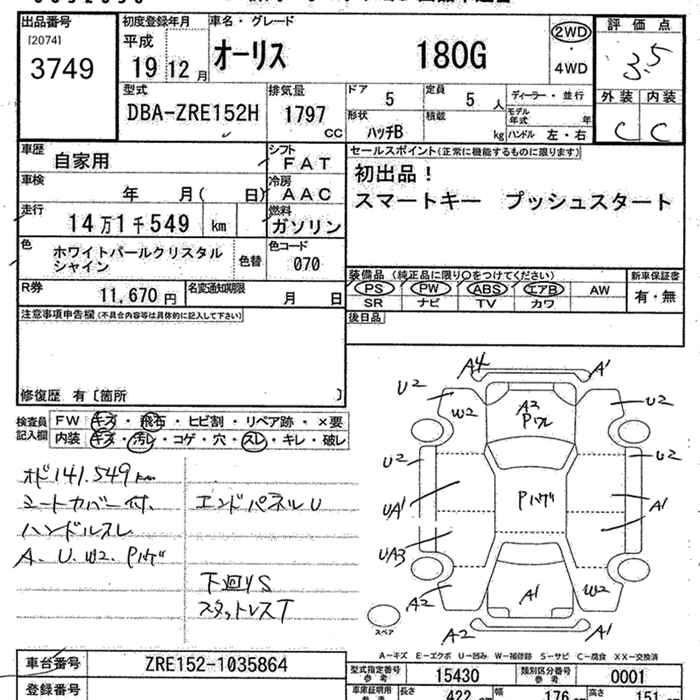 出品番号 [2074] 3749
初度登録年月 平成 19年 12月
車名・グレード オーリス 180G
2WD ・ 4WD
評価点 3.5
外装 内装
C C
型式 DBA-ZRE152H
排気量 1797 CC
ドア 5
定員 5人
形状 ハッチB
積載 kg
ディーラー・並行
モデル年式 年
ハンドル 左・右
車歴 自家用
シフト FAT
車検 年 月( 日)
冷房 AAC
走行 14万1千549 km
燃料 ガソリン
色 ホワイトパールクリスタル
シャイン
色替
色コード 070
R券 11,670円
名変通知期限 月 日
セールスポイント(正常に機能するものに限ります)
初出品!
スマートキー プッシュスタート
装備品 (純正品に限り○をつけてください)
PS PW ABS エアB AW
SR ナビ TV カワ
新車保証書
有・無
後日品
注意事項申告欄(不具合内容等は具体的に記入して下さい)
修復歴 有〔箇所 〕
検査員記入欄
FW キズ・飛石・ヒビ割・リペア跡・×要
内装 キズ・汚レ・コゲ・穴・スレ・キレ・破レ
オド141.549km
シートカバー付.
ハンドルスレ
A. U. W2. Pハゲ
エンドパネルU
下回りS
スタットレスT
A4 A1
U2 W2 A2 Pワレ U2
U2 U2
UA1 Pハゲ A1
UA3
A2 A1 W2
A2 A1
スペア
A-キズ E-エクボ U-凹み W-補修跡 S-サビ C-腐食 XX-交換済
車台番号 ZRE152-1035864
登録番号
型式指定番号 参考 15430
類別区分番号 参考 0001
車庫証明用 参考 長さ 422 幅 176 高さ 151